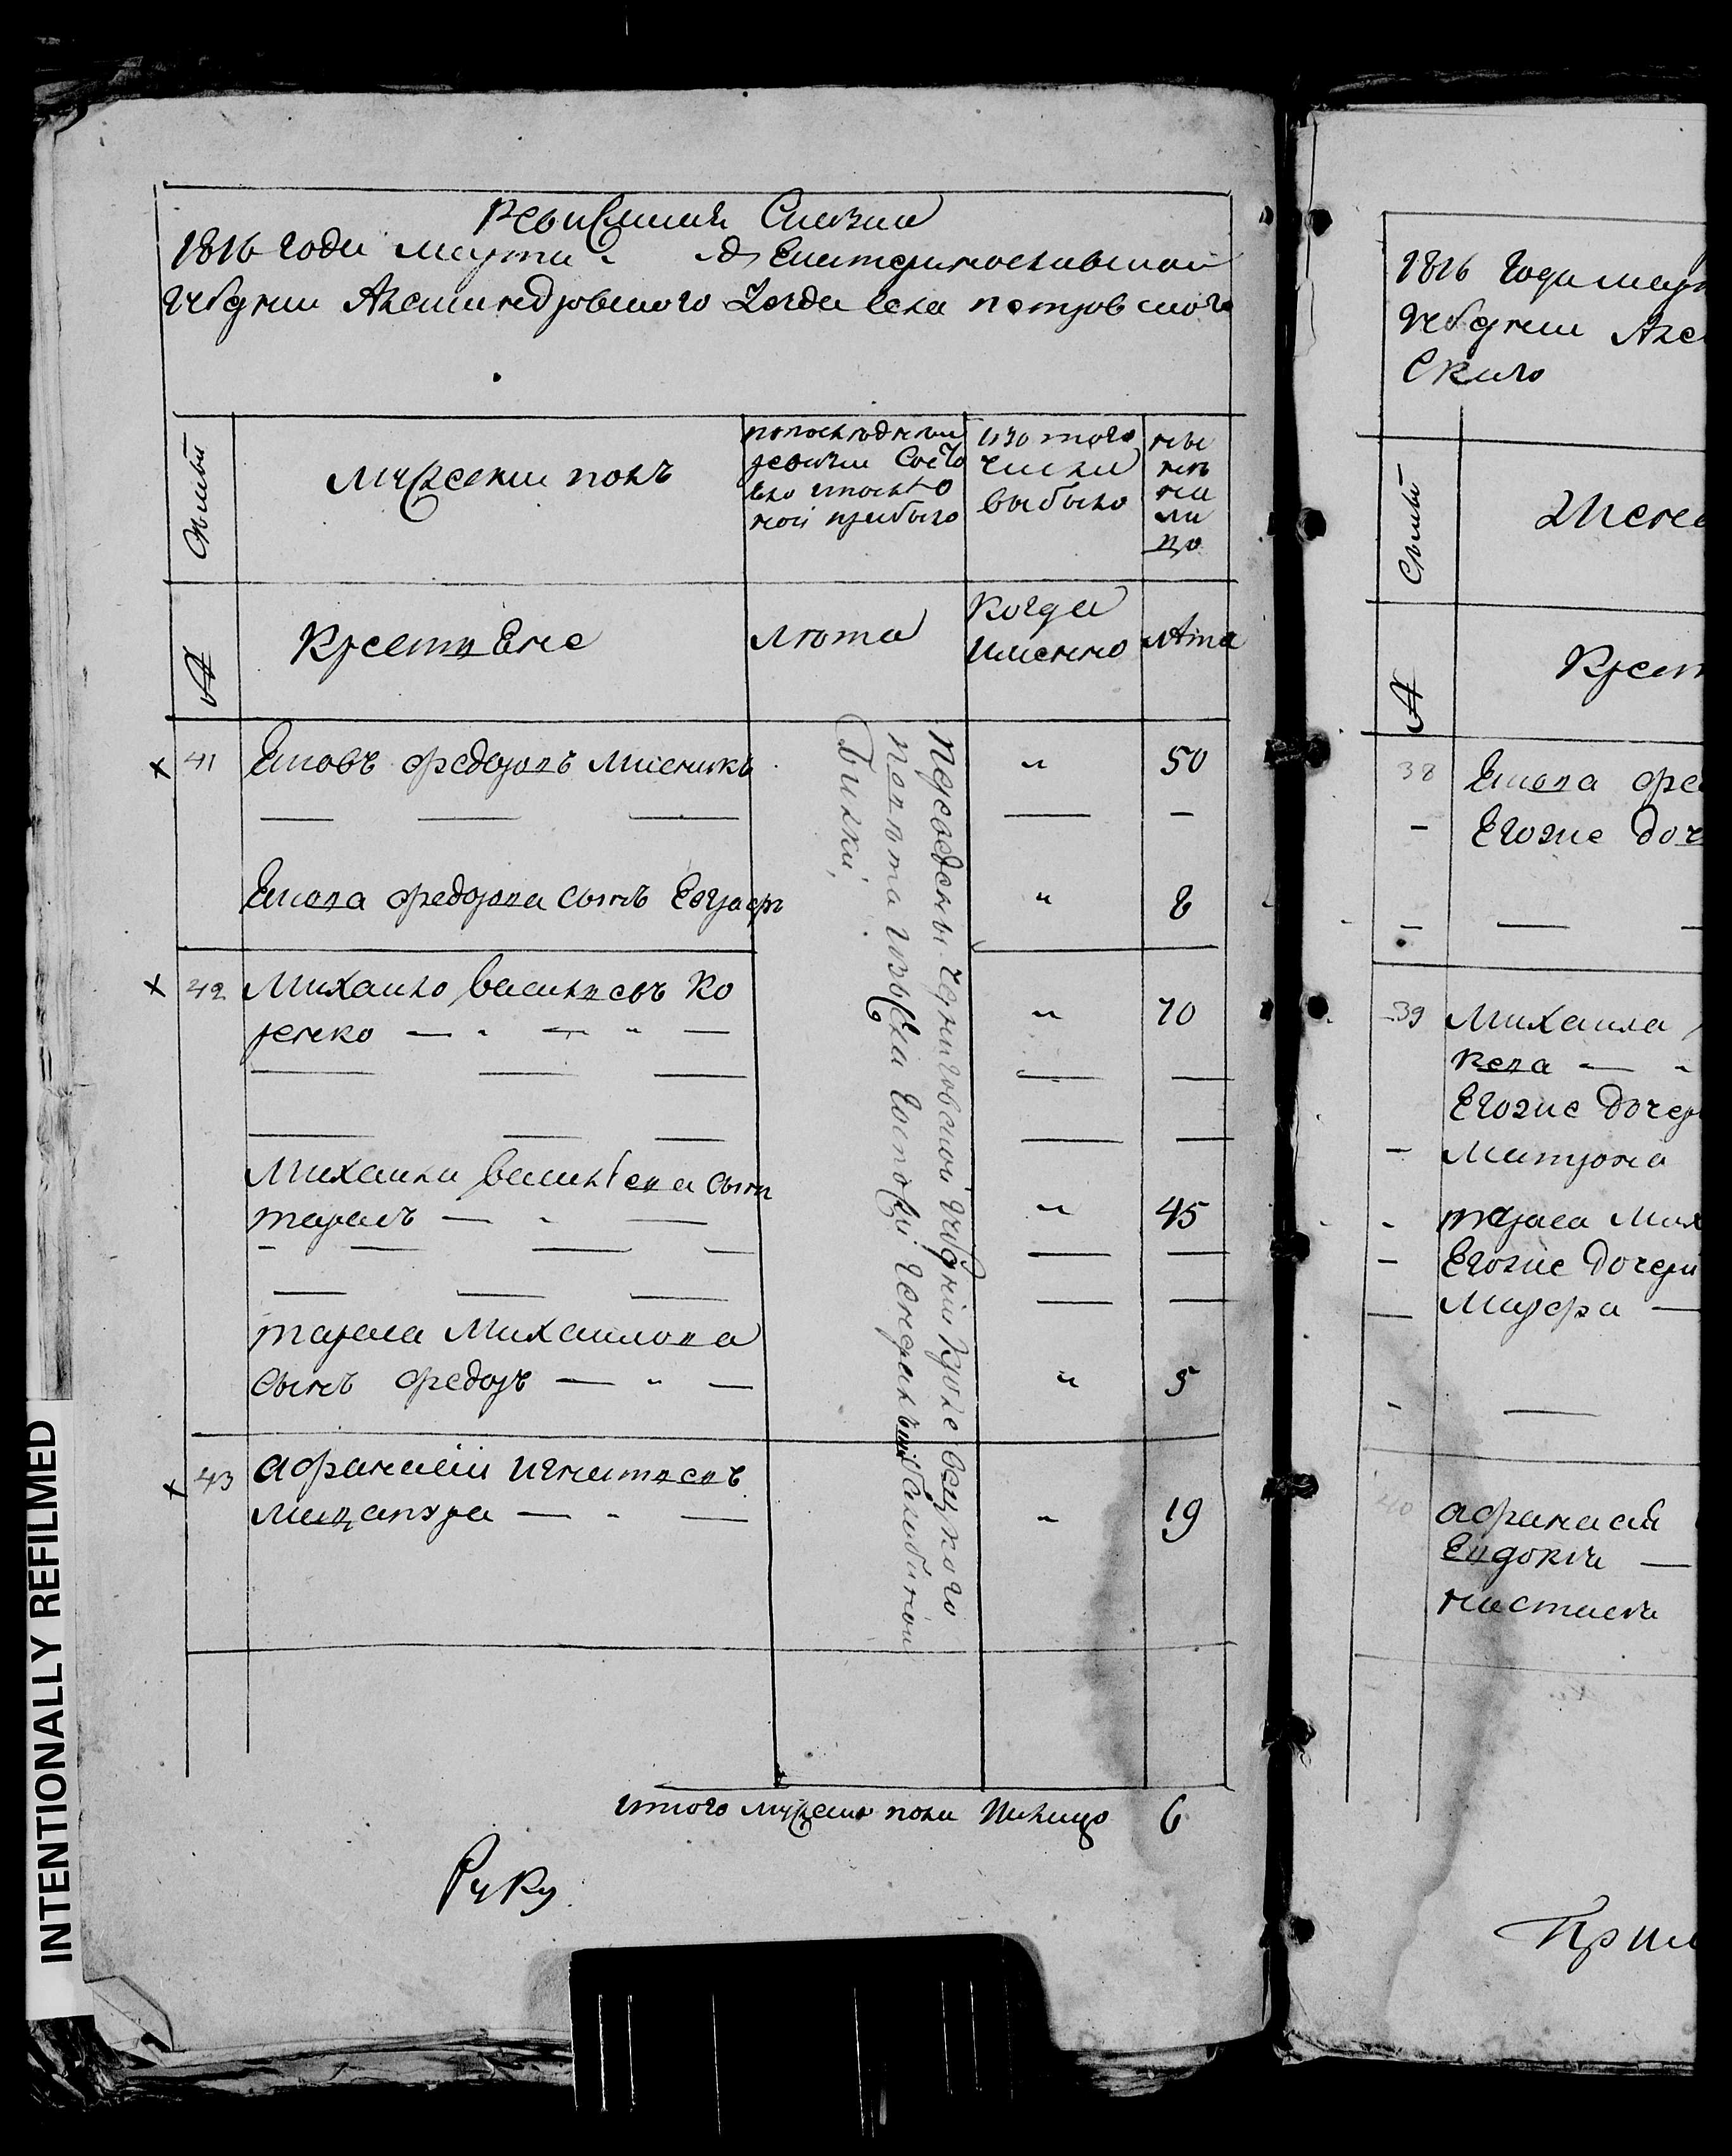 Ревизская Сказка
1816 года марта " дня Екатеринославской
губернии Александровского уезда села петровского
Семьи
мужески полъ
попоследней
ревизии Состо
яло ипосле о
ной прибыло
изо того
числа
выбыло
ныне
на
ли
цо
№
Крестяне
лета
когда
имянно
лета
41 Еков федоровъ мисникъ " 50
Екова федорова сынъ Еврафъ " 8
42 Михаило васильевъ Ко
ренко — " — " — " 70
Михаила васильева сынъ
тарасъ — " — " 45
тараса Михаилова
сынъ федоръ — " — " 5
43 афанасий игнатиевъ
мацапура — " — " 19
Переведены Черниговской губернии Кролевецкого
повета изъ села Госпожи Генеральшы
итого мужеска пола Налицо 6
Руку
1816 года мар
губернии Але
Ского
Семьи
Женс
№
Крест
38 Екова фе
Егоже доч
39 Михаила
Егоже дочер
матрона
тараса Мих
Егоже дочери
марфа —
40 афанасия
Евдокия —
настася
При
INTENTIONALLY REFILMED